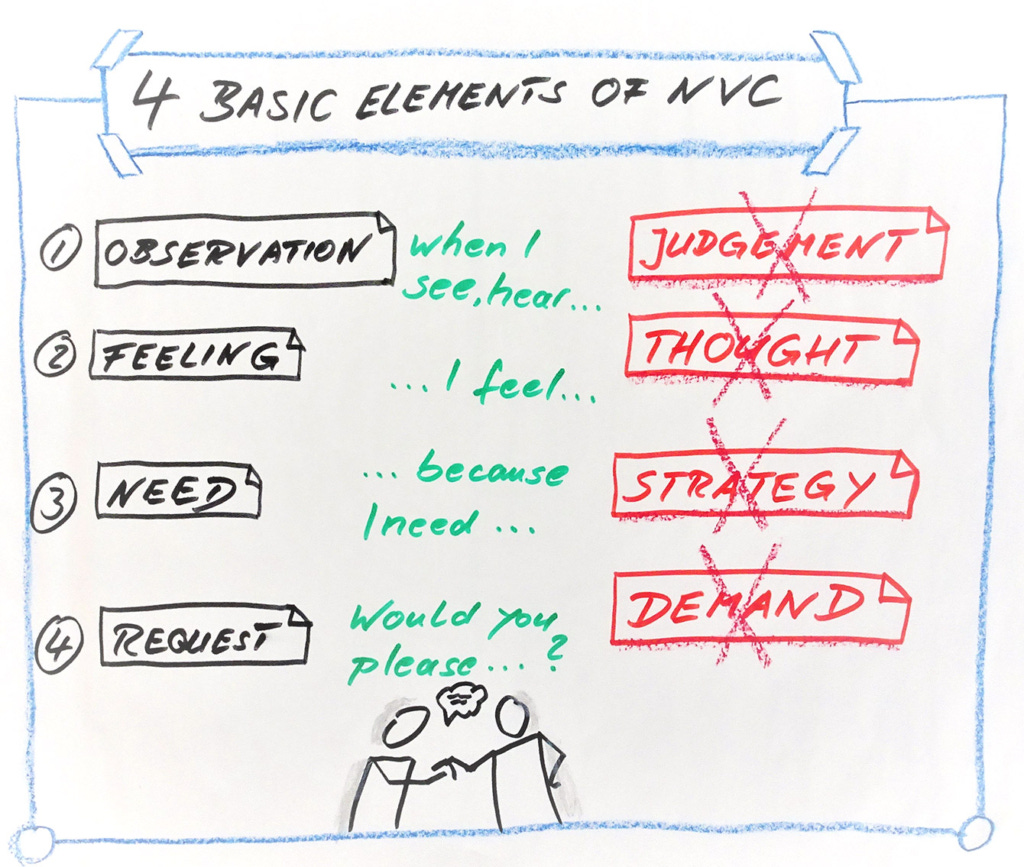 4 BASIC ELEMENTS OF NVC
1 OBSERVATION when I see, hear... JUDGEMENT
2 FEELING ... I feel... THOUGHT
3 NEED ... because I need ... STRATEGY
4 REQUEST Would you please... ? DEMAND